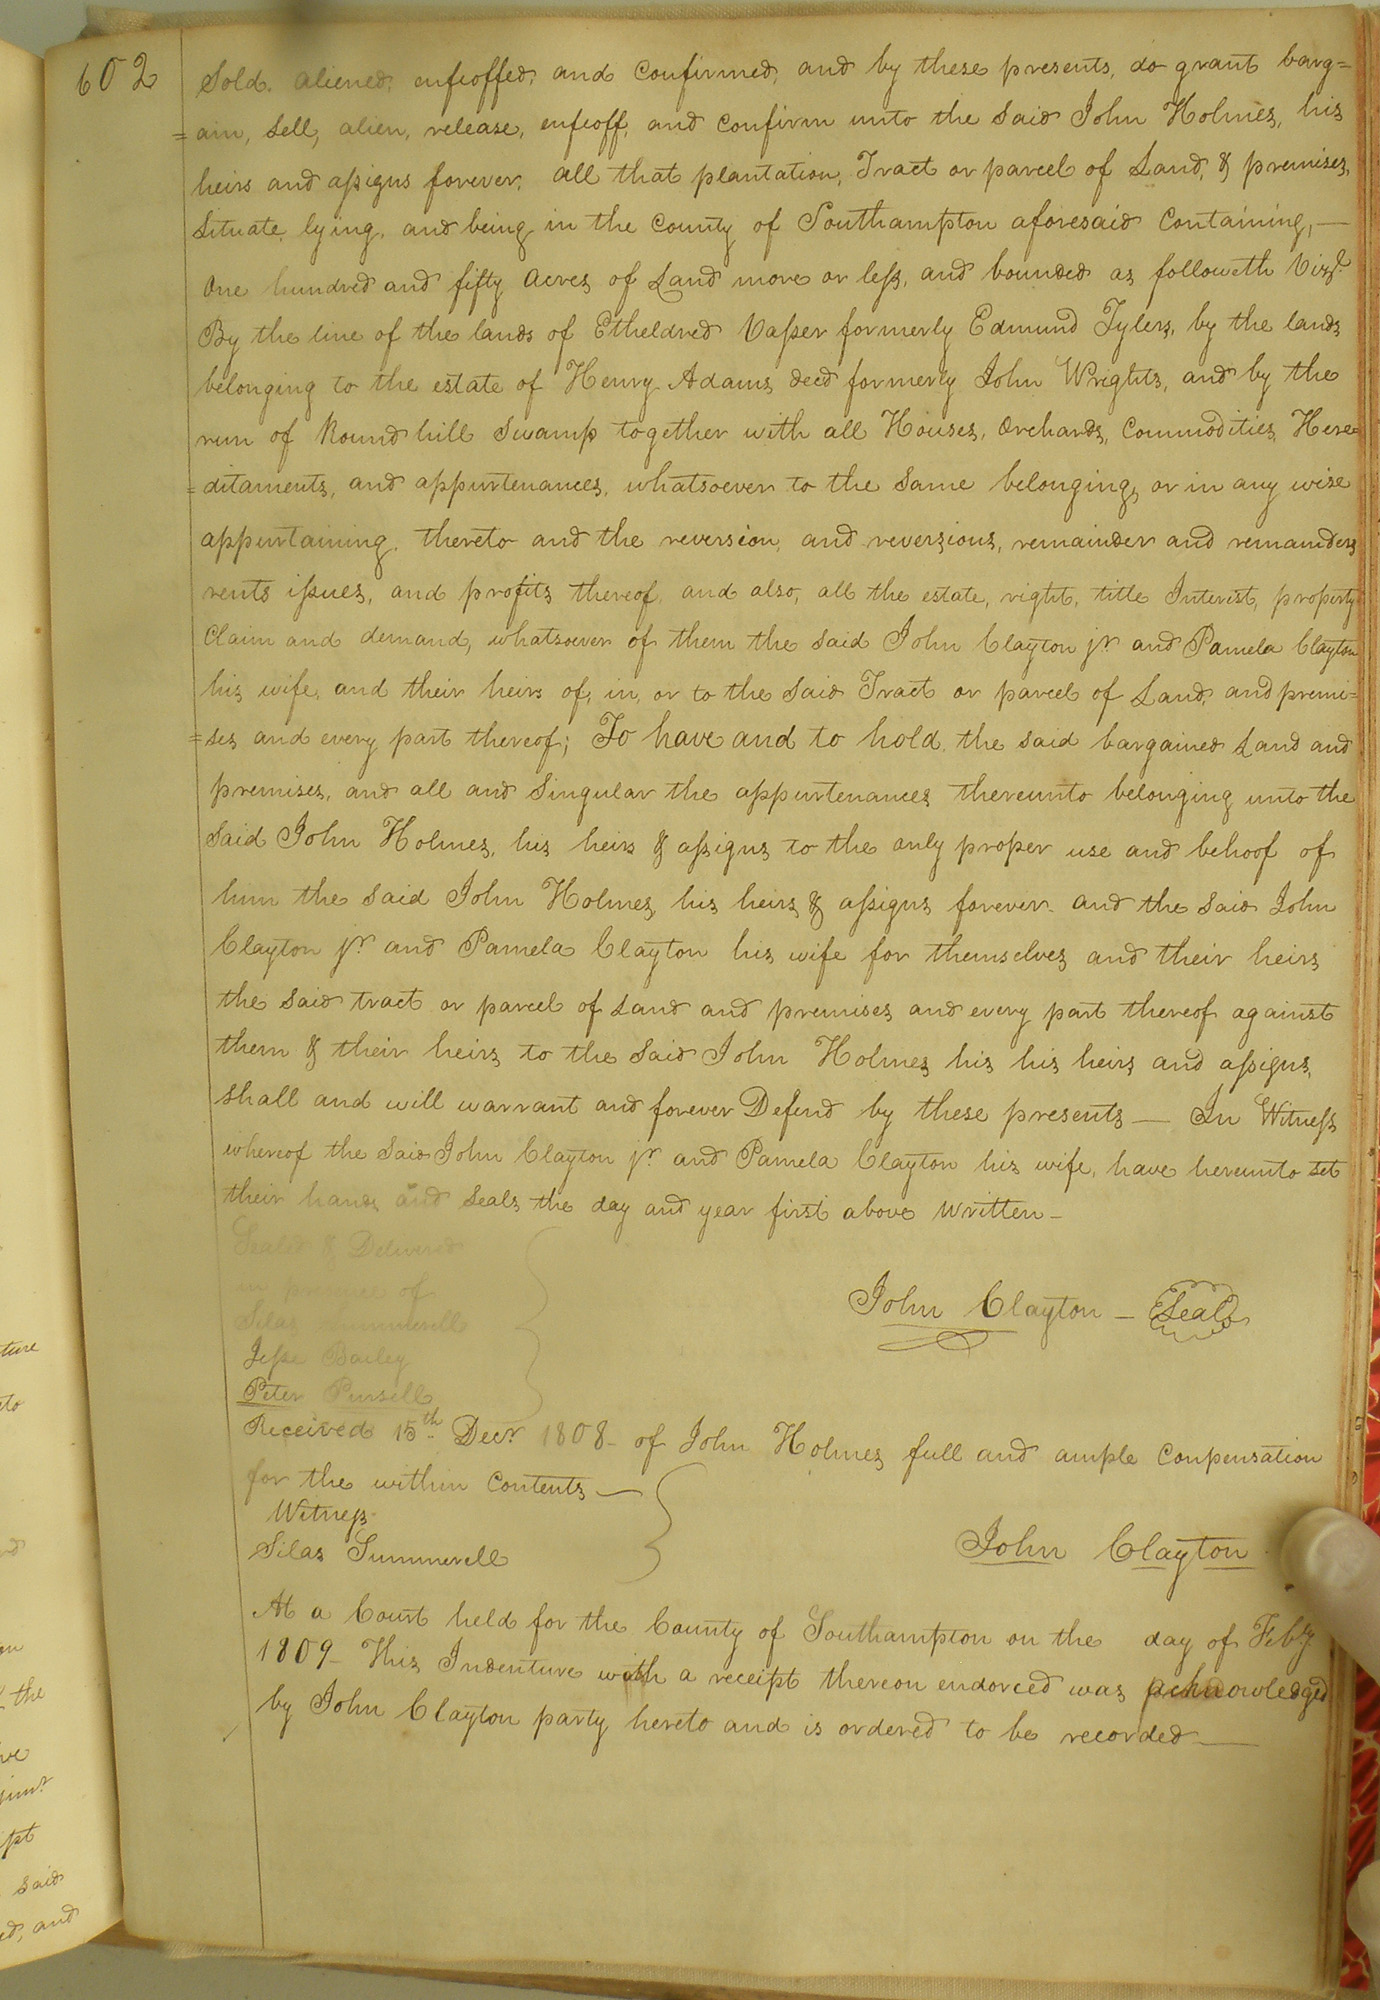 602
Sold, aliened, enfeoffed, and confirmed, and by these presents, do grant barg=
=ain, sell, alien, release, enfeoff, and confirm unto the said John Holmes, his
heirs and assigns forever, all that plantation, Tract or parcel of Land, & premises,
situate, lying, and being in the county of Southampton aforesaid containing, —
One hundred and fifty acres of Land more or less, and bounded as followeth Vizt.
By the line of the lands of Etheldred Vasser formerly Edmund Tylers, by the lands
belonging to the estate of Henry Adams decd formerly John Wrights, and by the
run of Round hill Swamp together with all Houses, Orchards, Commodities Here=
=ditaments, and appurtenances, whatsoever to the same belonging, or in any wise
appurtaining, thereto and the reversion, and reversions, remainder and remainders
rents issues, and profits thereof, and also, all the estate, right, title Interest, property
Claim and demand, whatsoever of them the said John Clayton jr. and Pamela Clayton
his wife, and their heirs of, in, or to the said Tract or parcel of Land, and premi=
=ses and every part thereof; To have and to hold, the said bargained Land and
premises, and all and singular the appurtenances thereunto belonging unto the
said John Holmes, his heirs & assigns to the only proper use and behoof of
him the said John Holmes, his heirs & assigns forever. and the said John
Clayton jr. and Pamela Clayton his wife for themselves and their heirs
the said tract or parcel of Land and premises and every part thereof against
them & their heirs to the said John Holmes his his heirs and assigns,
shall and will warrant and forever Defend by these presents — In Witness
whereof the said John Clayton jr. and Pamela Clayton his wife, have hereunto set
their hands and seals the day and year first above written —
Sealed & Delivered
in presence of
Silas Summerell
John Clayton — Seal
Jesse Bailey
Peter Pursell
Received 15th. Decr. 1808 — of John Holmes full and ample Conpensation
for the within Contents —
Witness
Silas Summerell
John Clayton
At a Court held for the County of Southampton on the day of Feby
1809 — This Indenture with a receipt thereon endorced was acknowledged
by John Clayton party hereto and is ordered to be recorded —
ture
the
said
and